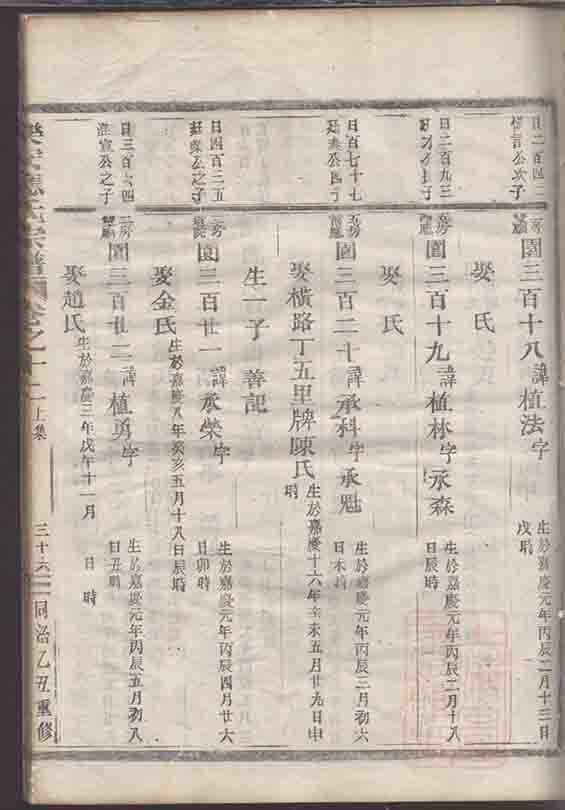 日二百四二
公次子
園三百十八諱植法字
生於嘉慶元年丙辰二月十三日
戌時
娶 氏
日二百九三
園三百十九諱植林字承森
生於嘉慶元年丙辰二月十八
日辰時
娶 氏
日百七十七
公四子
園三百二十諱承科字承魁
生於嘉慶元年丙辰三月初六
日未時
娶橫路丁五里牌陳氏
生於嘉慶十六年辛未五月廿九日申
時
生一子 善記
日四百三五
廷榮公之子
園三百廿一諱承榮字
生於嘉慶元年丙辰四月廿六
日卯時
娶金氏
生於嘉慶八年癸亥五月十八日辰時
日三百六四
宣公之子
園三百廿二諱植勇字
生於嘉慶元年丙辰五月初八
日丑時
娶趙氏
生於嘉慶三年戊午十一月 日 時
應氏宗譜 卷之十二上集 三十六 同治乙丑重修